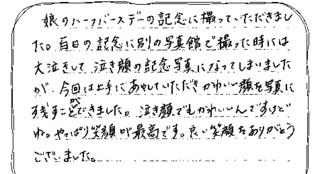 娘のハーフバースデーの記念に撮っていただきまし
た。百日の記念に別の写真館で撮った時には
大泣きして、泣き顔の記念写真になってしまいました
が、今回は上手にあやしていただきかわいい顔を写真に
残すことができました。泣き顔でもかわいいんですけど
ね。やっぱり笑顔が最高です。良い笑顔をありがとう
ございました。